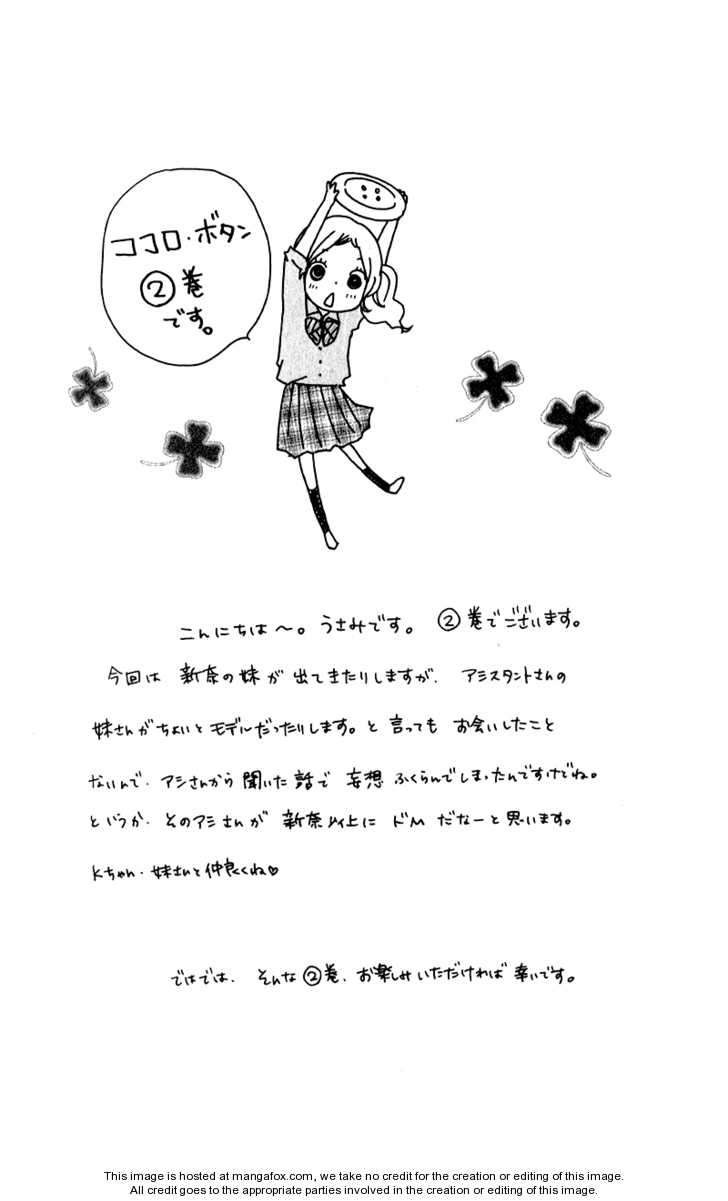 ココロ・ボタン
②巻
です。
こんにちは〜。うさみです。②巻でございます。
今回は 新奈の妹が出てきたりしますが、アシスタントさんの
妹さんがちょいとモデルだったりします。と言っても お会いしたこと
ないんで、アシさんから聞いた話で 妄想 ふくらんでしまったんですけどね。
というか、そのアシさんが 新奈以上に ドM だなーと思います。
Kちゃん、妹さんと仲良くね♡
ではでは、そんな②巻、お楽しみいただければ 幸いです。
This image is hosted at mangafox.com, we take no credit for the creation or editing of this image.
All credit goes to the appropriate parties involved in the creation or editing of this image.